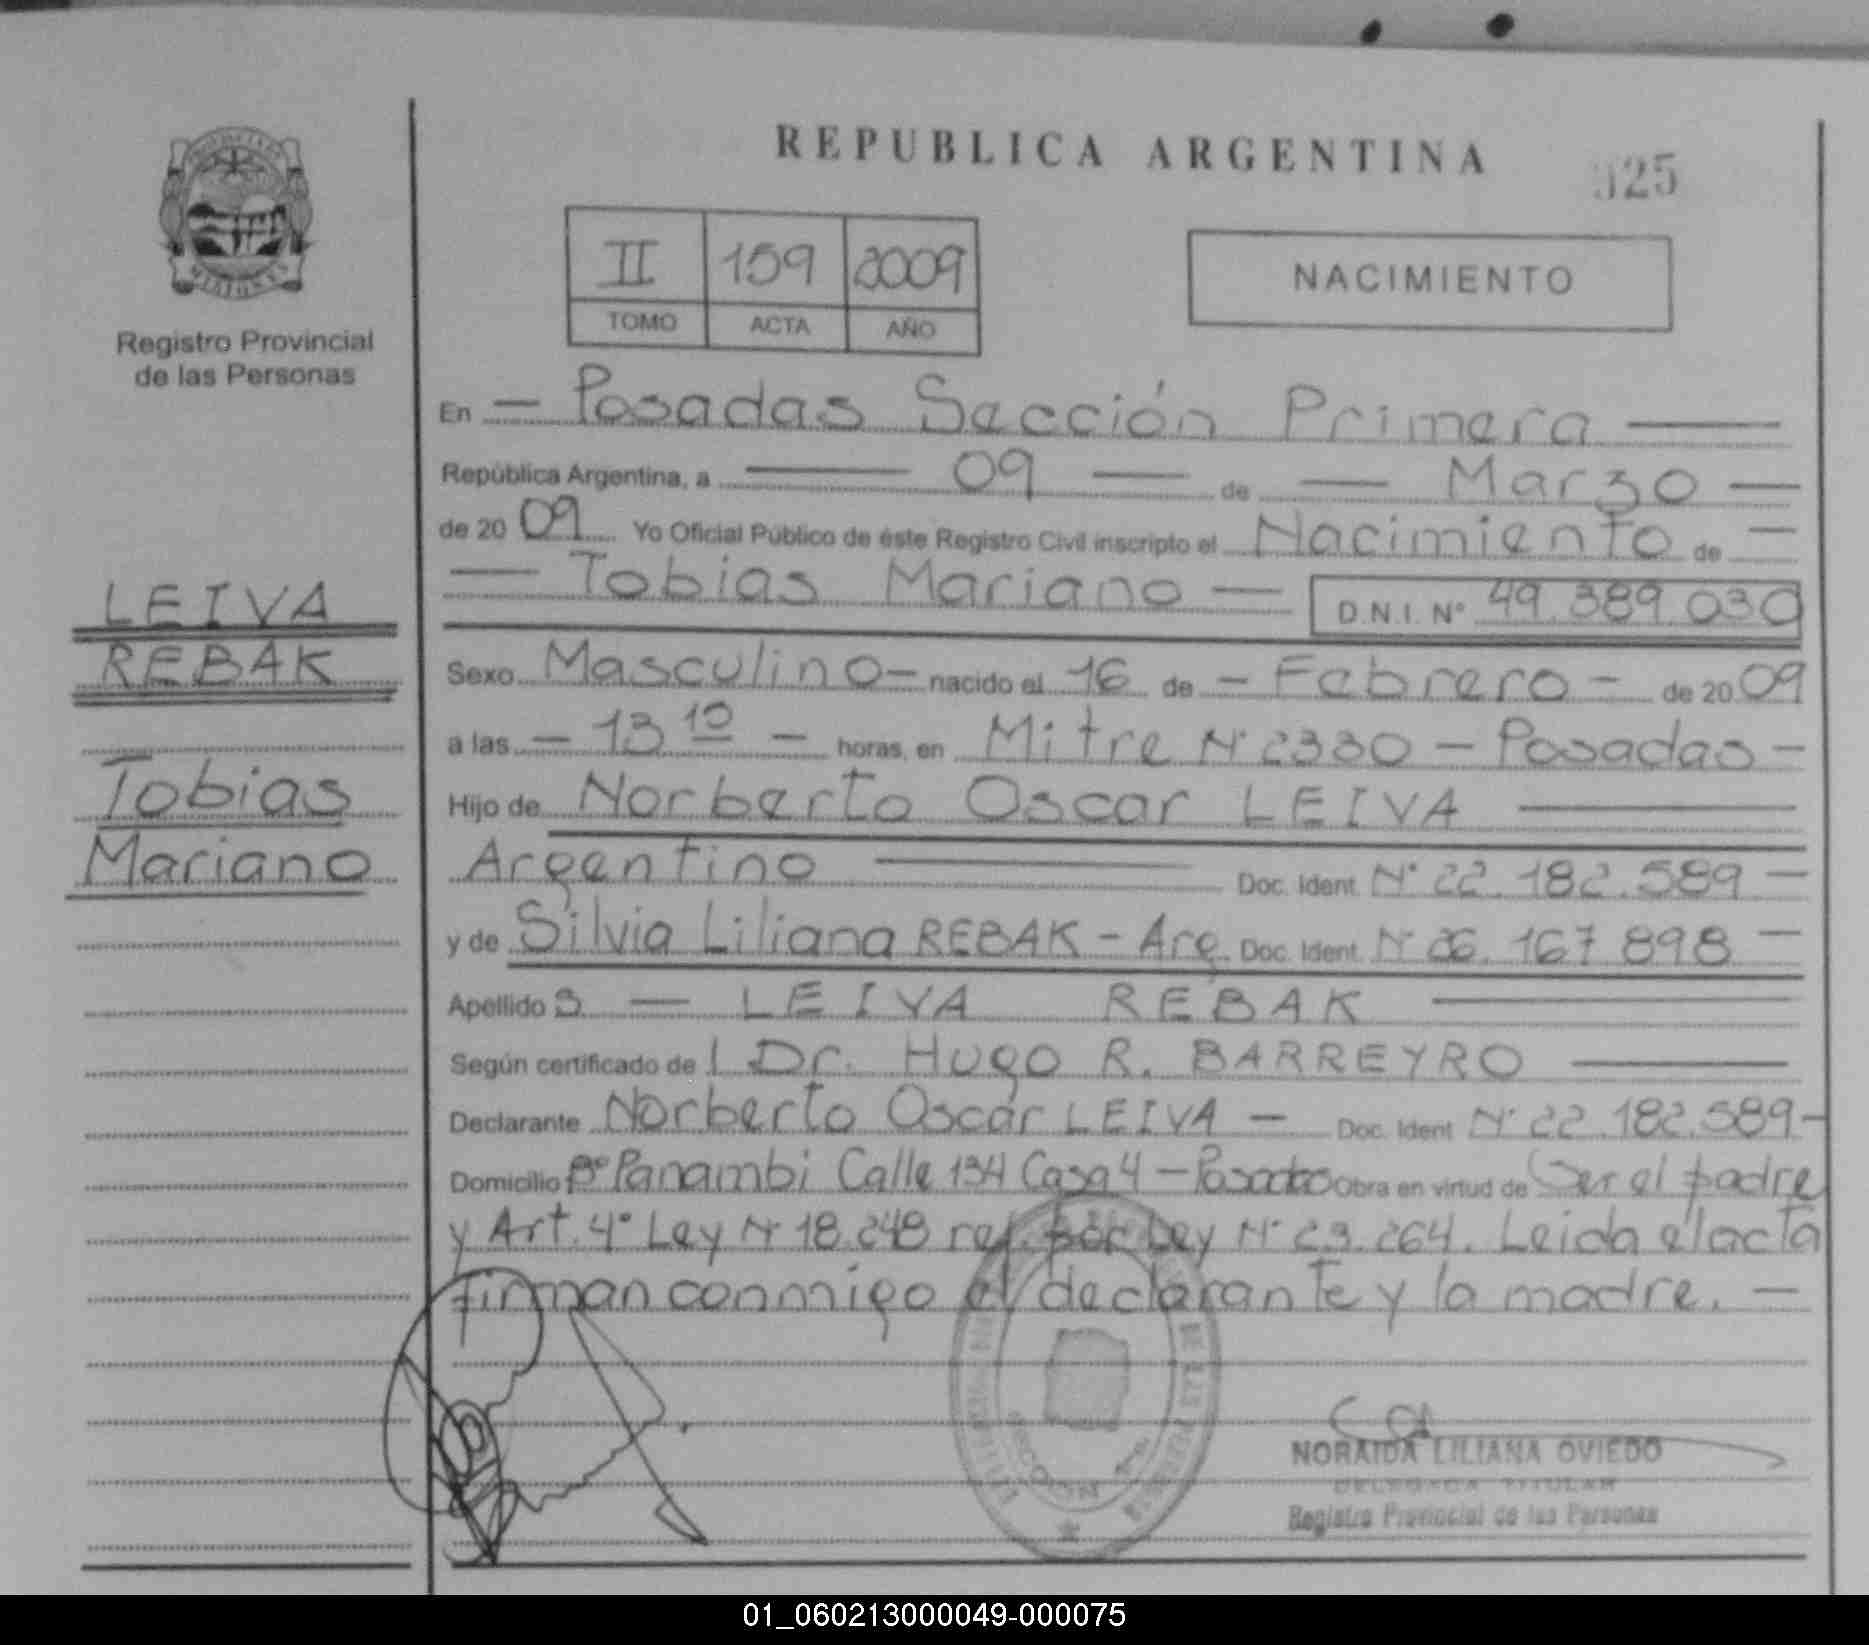 REPUBLICA ARGENTINA
325
PROVINCIA DE
MISIONES
Registro Provincial
de las Personas
II 159 2009
TOMO ACTA AÑO
NACIMIENTO
En — Posadas Sección Primera —
República Argentina, a — 09 — de — Marzo —
de 20 09 Yo Oficial Público de éste Registro Civil inscripto el Nacimiento de —
— Tobias Mariano — D.N.I. Nº 49.389.030
LEIVA
REBAK
Tobias
Mariano
Sexo Masculino — nacido el 16 de — Febrero — de 20 09
a las — 13 10 — horas, en Mitre Nº 2330 — Posadas —
Hijo de Norberto Oscar LEIVA —
Argentino — Doc. Ident. Nº 22.182.589 —
y de Silvia Liliana REBAK — Arg. Doc. Ident. Nº 26.167.898 —
Apellido s — LEIVA REBAK —
Según certificado de l Dr. Hugo R. BARREYRO —
Declarante Norberto Oscar LEIVA — Doc. Ident Nº 22.182.589 —
Domicilio Bº Panambi Calle 134 Casa 4 — Posadas Obra en virtud de Ser el padre
y Art. 4º Ley Nº 18.248 ref. por Ley Nº 23.264. Leida el acta
firman conmigo el declarante y la madre. —
NORAIDA LILIANA OVIEDO
DELEGADA TITULAR
Registro Provincial de las Personas
01_060213000049-000075